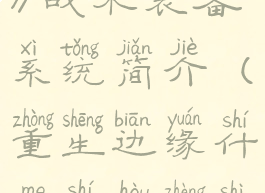 战术装备
xì tǒng jiǎn jiè
系统简介（
zhòng shēng biān yuán shí
重生边缘什
me shí hòu zhèng shì